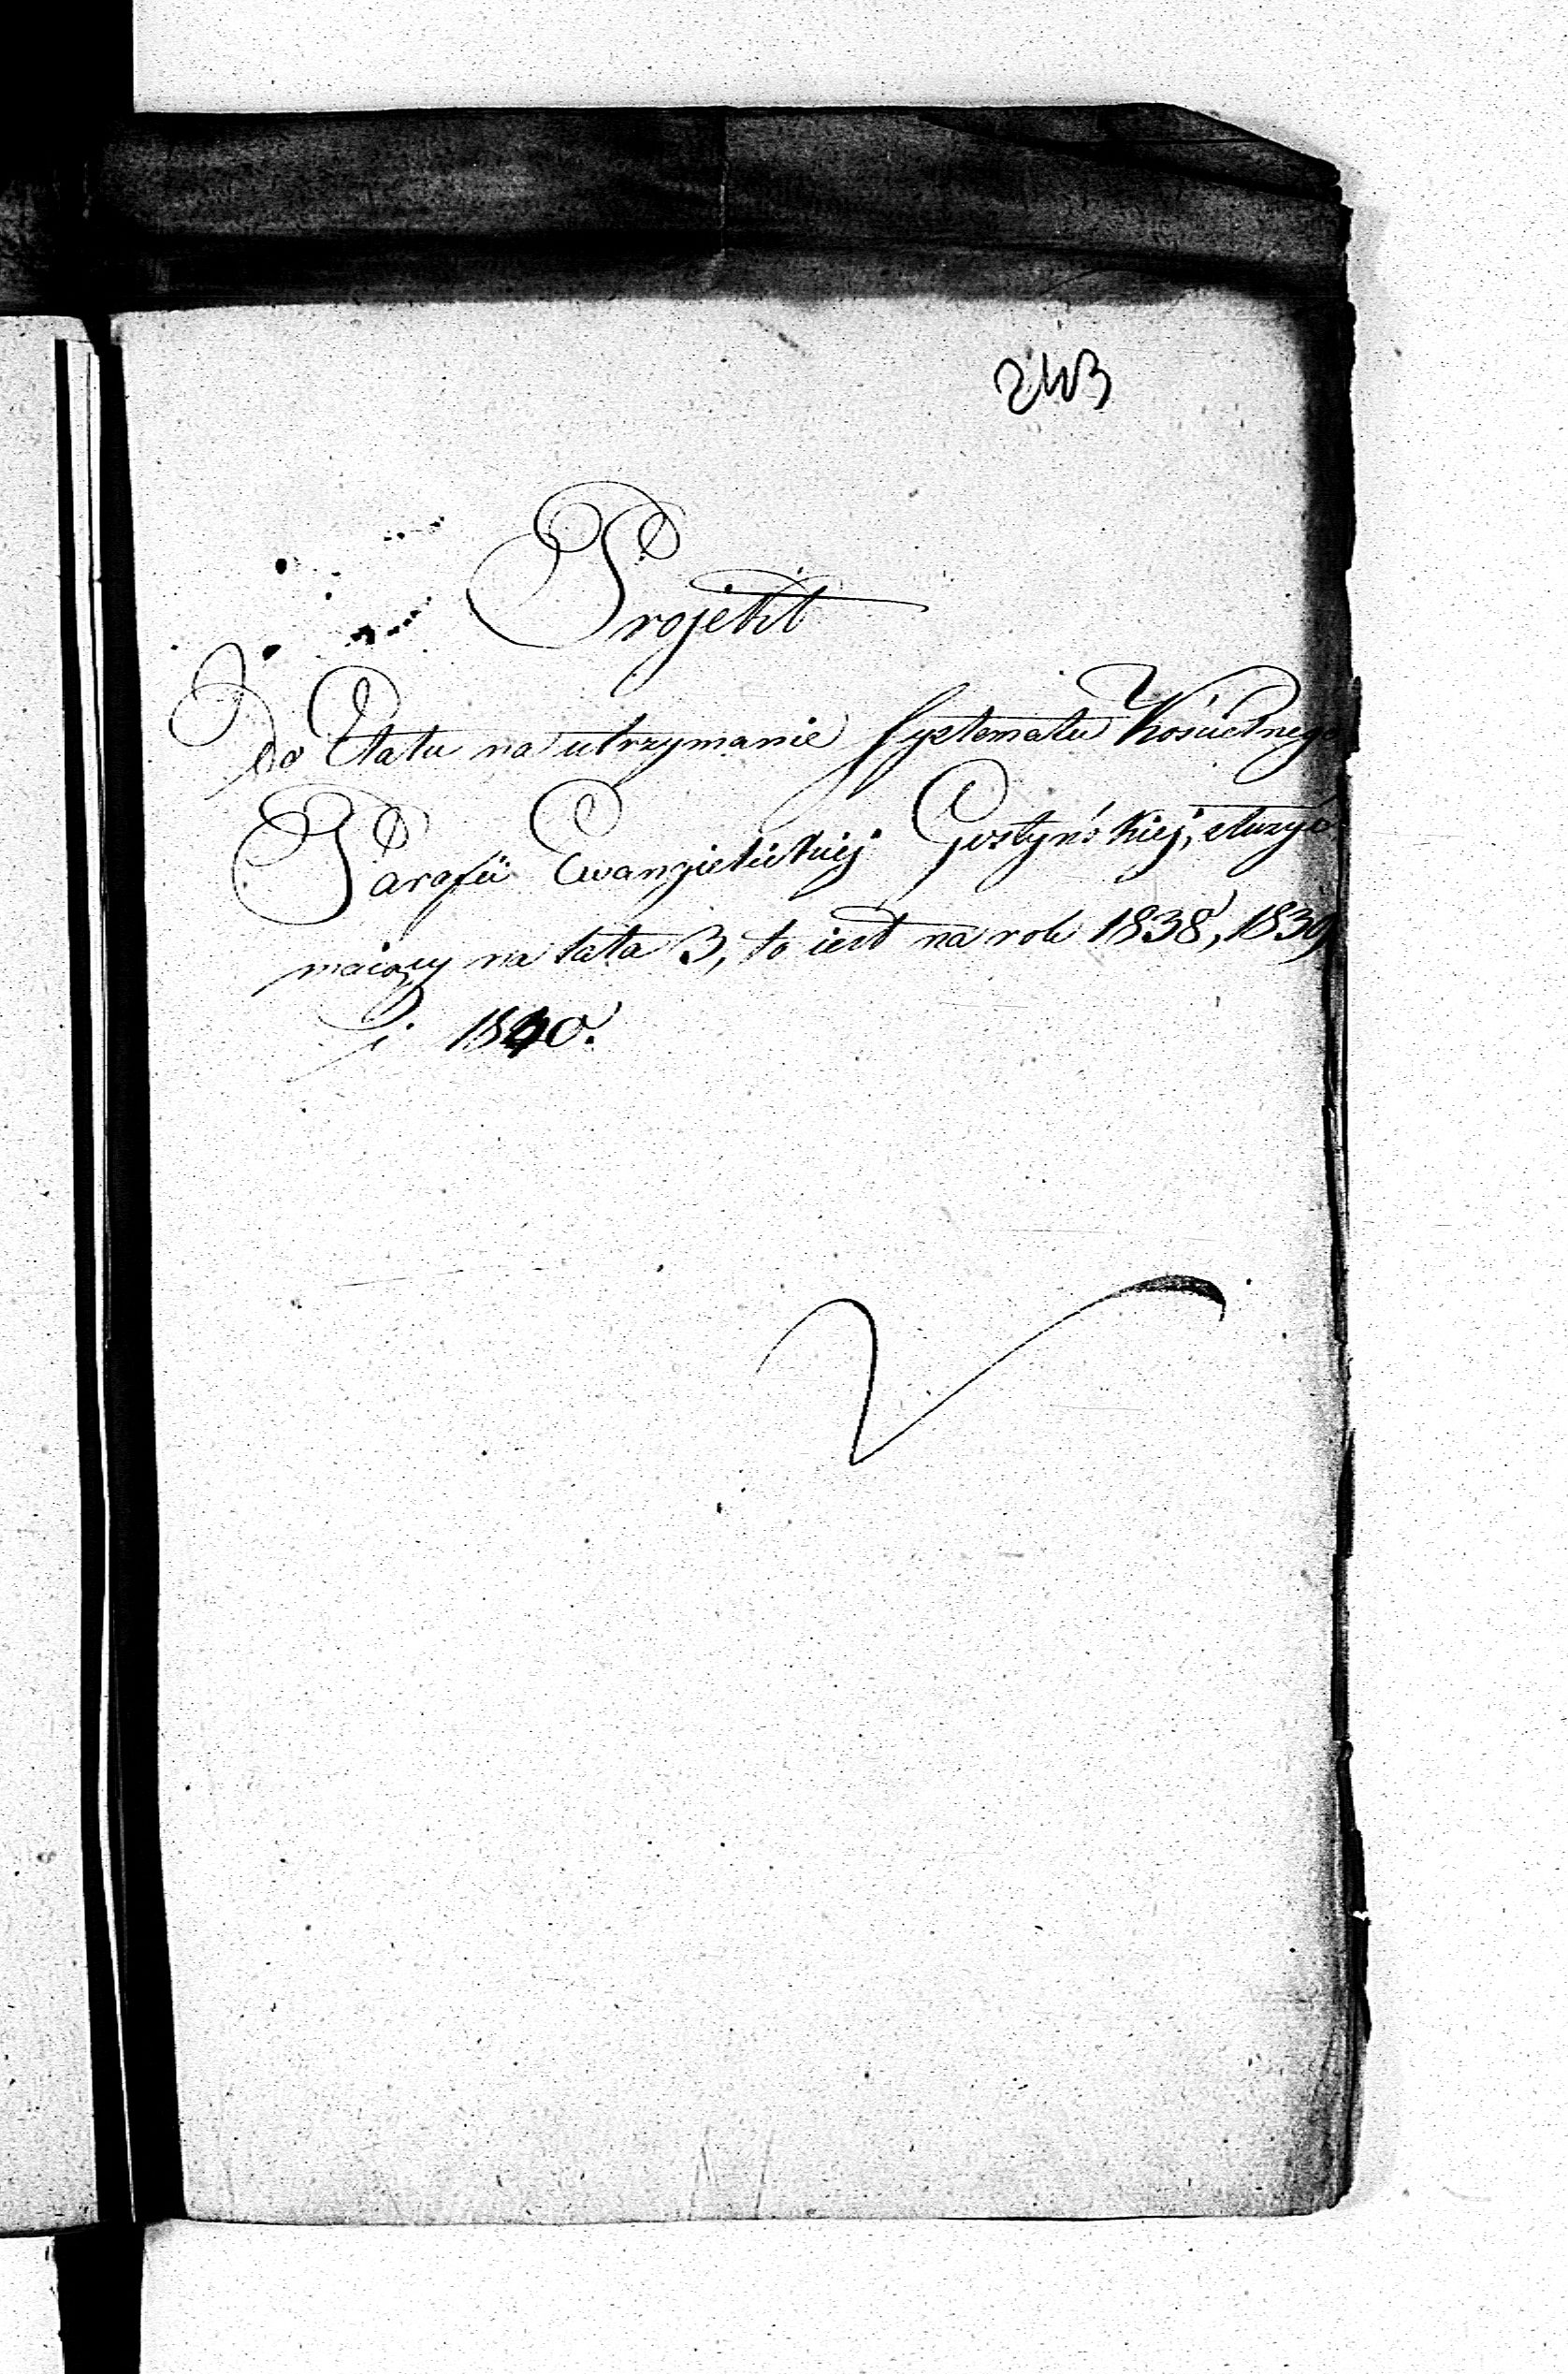 243
Projekt
Do Etatu na utrzymanie Systematu Kościelnego
Parafii Ewangielickiej Gostyńskiej, służyć
maiący na lata 3, to iest na rok 1838, 1839
i 1840.